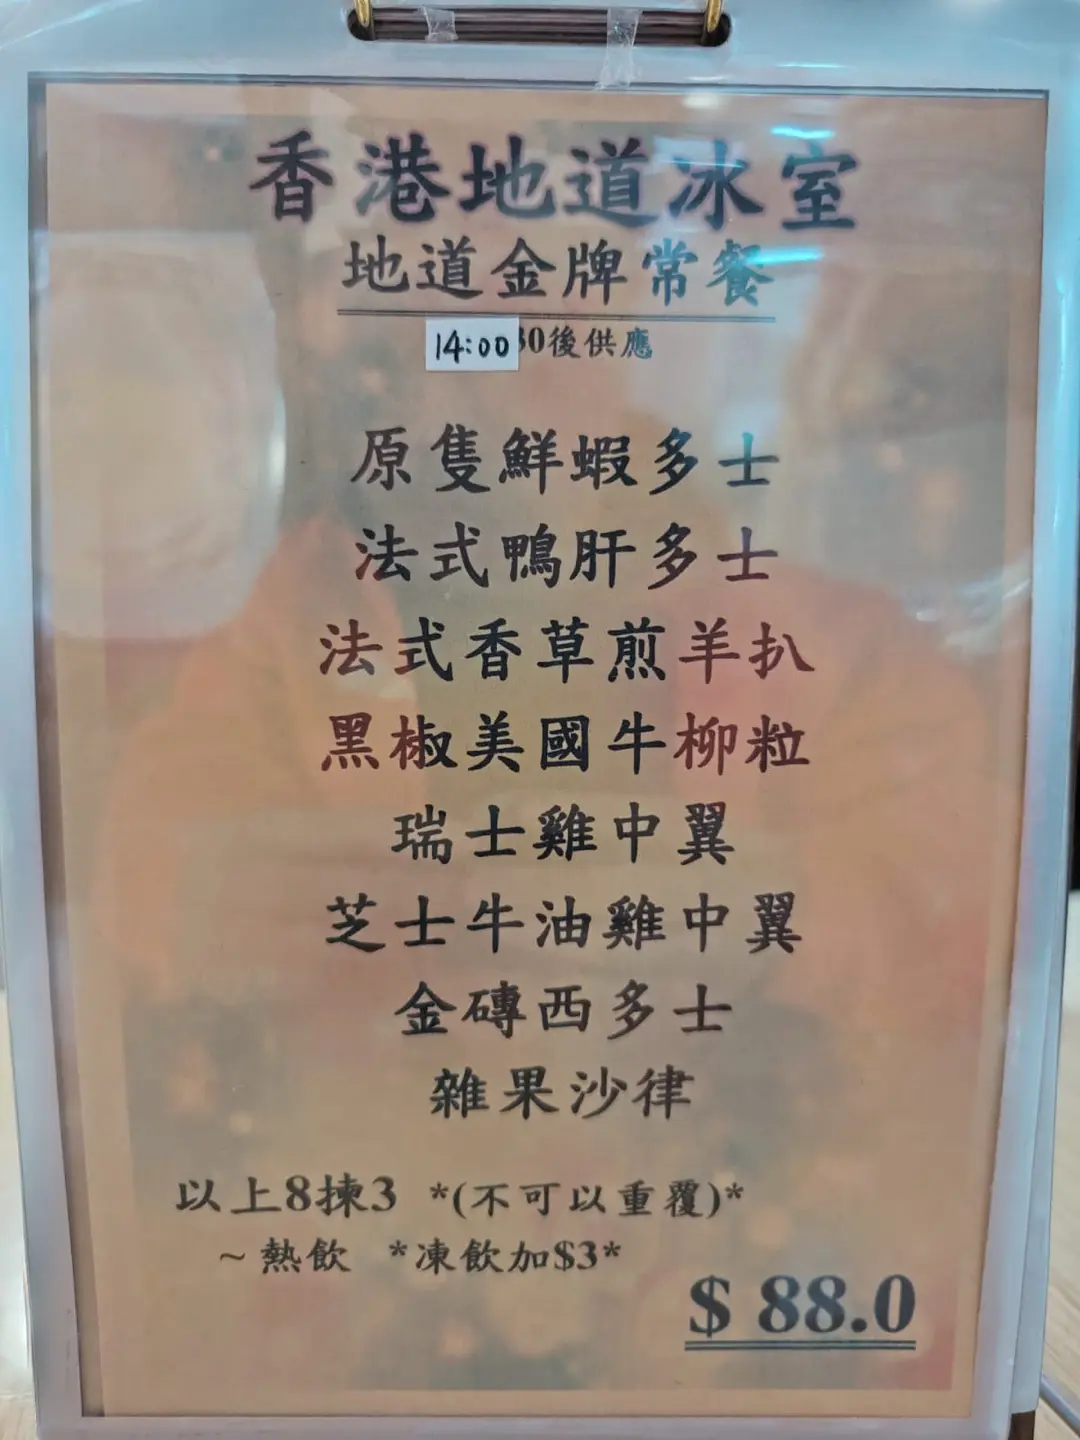 香港地道冰室
地道金牌常餐
14:00 30後供應
原隻鮮蝦多士
法式鴨肝多士
法式香草煎羊扒
黑椒美國牛柳粒
瑞士雞中翼
芝士牛油雞中翼
金磚西多士
雜果沙律
以上8揀3 *(不可以重覆)*
~熱飲 *凍飲加$3*
$ 88.0